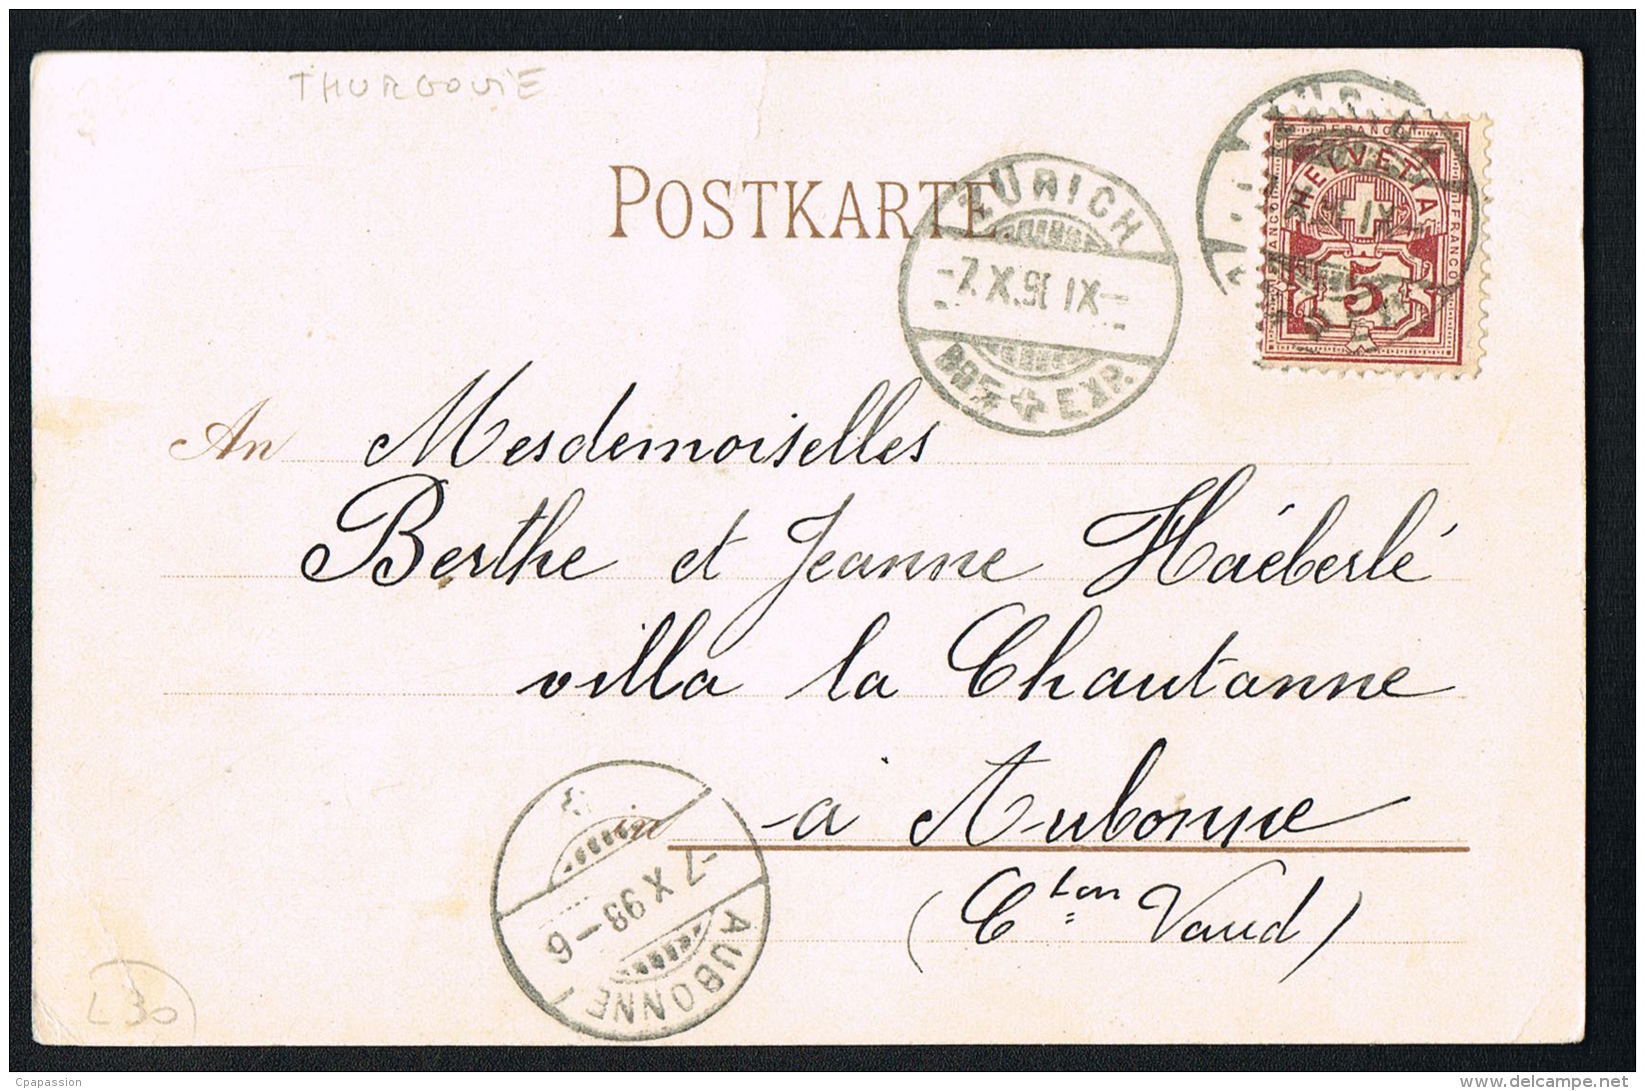 THURGOVIE
POSTKARTE
ZÜRICH
-7.X.98 IX-
BRF. EXP.
FRANCO
HELVETIA
FRANCO
FRANCO
5
An Mesdemoiselles
Berthe et Jeanne Häeberlé
villa la Chautanne
in à Aubonne
(Cton Vaud)
-7 X 98-6
AUBONNE
L30
Cpapassion
www.delcampe.net